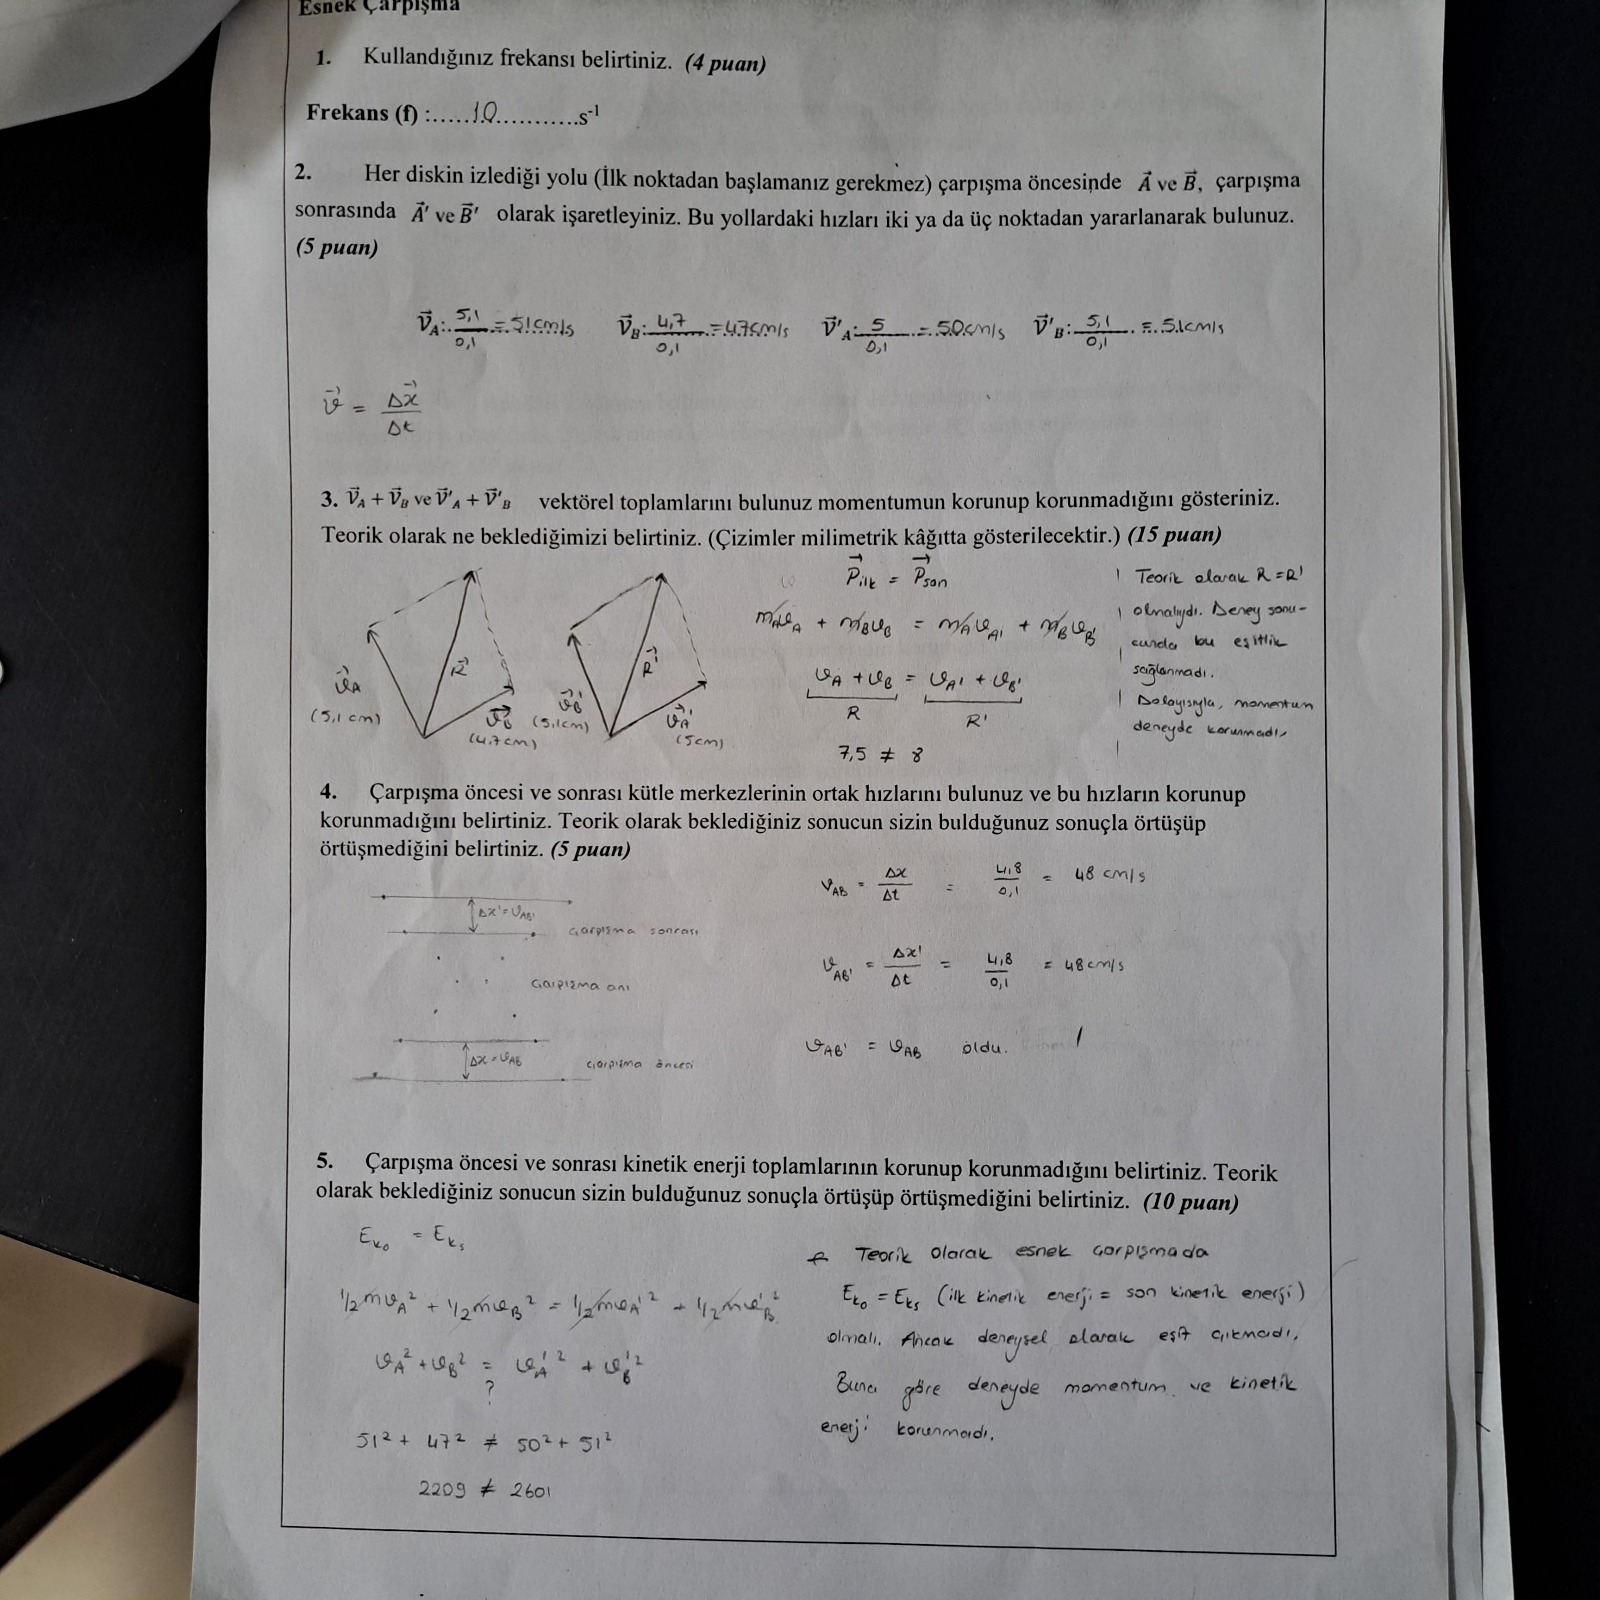 Esnek Çarpışma
1. Kullandığınız frekansı belirtiniz. (4 puan)
Frekans (f) :.....10...........s⁻¹
2. Her diskin izlediği yolu (İlk noktadan başlamanız gerekmez) çarpışma öncesinde A⃗ ve B⃗, çarpışma
sonrasında A⃗' ve B⃗' olarak işaretleyiniz. Bu yollardaki hızları iki ya da üç noktadan yararlanarak bulunuz.
(5 puan)
V⃗_A: 5,1/0,1 = 51cm/s V⃗_B: 4,7/0,1 = 47cm/s V⃗'_A: 5/0,1 = 50cm/s V⃗'_B: 5,1/0,1 = 51cm/s
v⃗ = Δx⃗/Δt
3. V⃗_A + V⃗_B ve V⃗'_A + V⃗'_B vektörel toplamlarını bulunuz momentumun korunup korunmadığını gösteriniz.
Teorik olarak ne beklediğimizi belirtiniz. (Çizimler milimetrik kâğıtta gösterilecektir.) (15 puan)
P⃗ilk = P⃗son
m_A v_A + m_B v_B = m_A v_A' + m_B v_B'
v_A + v_B = v_A' + v_B'
R R'
7,5 ≠ 8
Teorik olarak R = R'
olmalıydı. Deney sonu-
cunda bu eşitlik
sağlanmadı.
Dolayısıyla, momentum
deneyde korunmadı.
v⃗_A
(5,1 cm)
R⃗
v⃗_B
(4,7cm)
v⃗_B'
(5,1cm)
R⃗'
v⃗_A'
(5cm)
4. Çarpışma öncesi ve sonrası kütle merkezlerinin ortak hızlarını bulunuz ve bu hızların korunup
korunmadığını belirtiniz. Teorik olarak beklediğiniz sonucun sizin bulduğunuz sonuçla örtüşüp
örtüşmediğini belirtiniz. (5 puan)
Δx' = v_AB'
çarpışma sonrası
çarpışma anı
Δx = v_AB
çarpışma öncesi
v_AB = Δx/Δt = 4,8/0,1 = 48 cm/s
v_AB' = Δx'/Δt = 4,8/0,1 = 48cm/s
v_AB' = v_AB oldu.
5. Çarpışma öncesi ve sonrası kinetik enerji toplamlarının korunup korunmadığını belirtiniz. Teorik
olarak beklediğiniz sonucun sizin bulduğunuz sonuçla örtüşüp örtüşmediğini belirtiniz. (10 puan)
E_ko = E_ks
1/2 m v_A² + 1/2 m v_B² = 1/2 m v_A'² + 1/2 m v_B'²
v_A² + v_B² = v_A'² + v_B'²
?
51² + 47² ≠ 50² + 51²
2209 ≠ 2601
* Teorik olarak esnek çarpışmada
E_ko = E_ks (ilk kinetik enerji = son kinetik enerji)
olmalı. Ancak deneysel olarak eşit çıkmadı.
Buna göre deneyde momentum ve kinetik
enerji korunmadı.